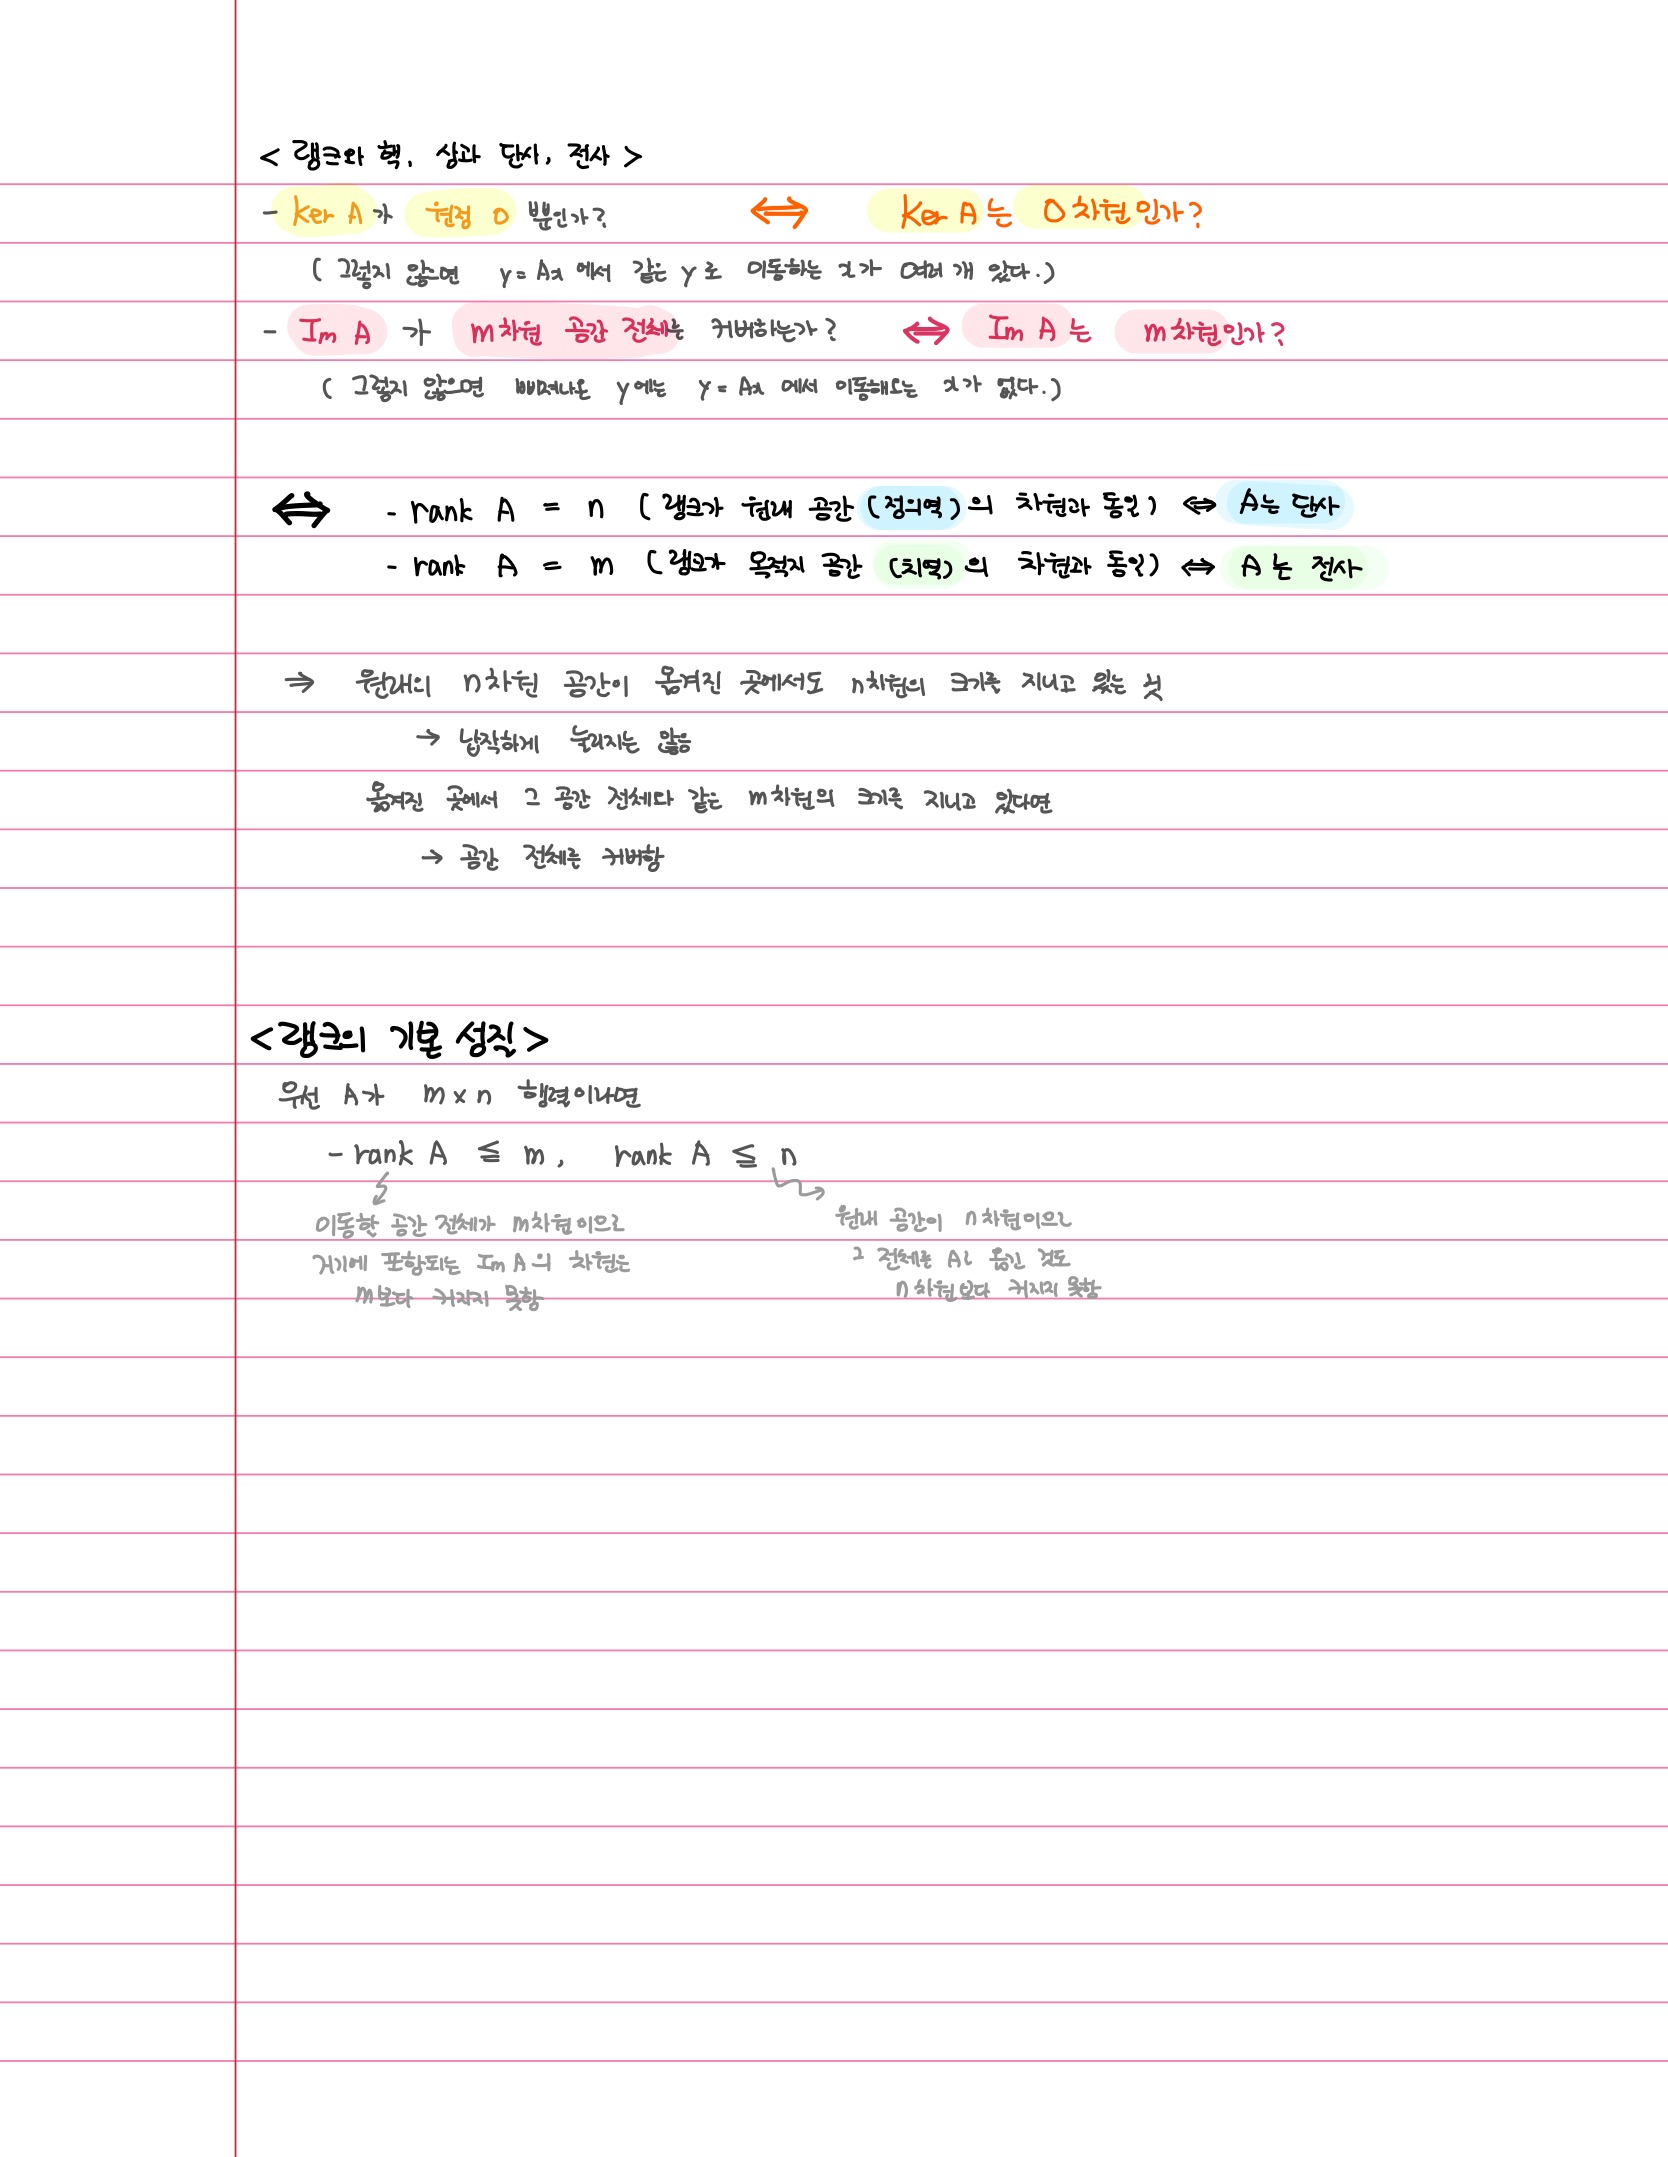 < 랭크와 핵, 상과 단사, 전사 >
- Ker A가 원점 0 뿐인가? ⇔ Ker A는 0차원인가?
( 그렇지 않으면 y = Ax 에서 같은 y로 이동하는 x가 여러 개 있다. )
- Im A 가 m차원 공간 전체를 커버하는가? ⇔ Im A는 m차원인가?
( 그렇지 않으면 삐져나온 y에는 y = Ax 에서 이동해오는 x가 없다. )
⇔ - rank A = n ( 랭크가 원래 공간 (정의역)의 차원과 동일 ) ⇔ A는 단사
- rank A = m ( 랭크가 목적지 공간 (치역)의 차원과 동일 ) ⇔ A는 전사
⇒ 원래의 n차원 공간이 옮겨진 곳에서도 n차원의 크기를 지니고 있는 것
→ 납작하게 눌리지는 않음
옮겨진 곳에서 그 공간 전체와 같은 m차원의 크기를 지니고 있다면
→ 공간 전체를 커버함
<랭크의 기본 성질>
우선 A가 m × n 행렬이나면
- rank A ≦ m, rank A ≦ n
이동한 공간 전체가 m차원이므로
거기에 포함되는 Im A의 차원은
m보다 커지지 못함
원래 공간이 n차원이므로
그 전체를 A로 옮긴 것도
n차원보다 커지지 못함